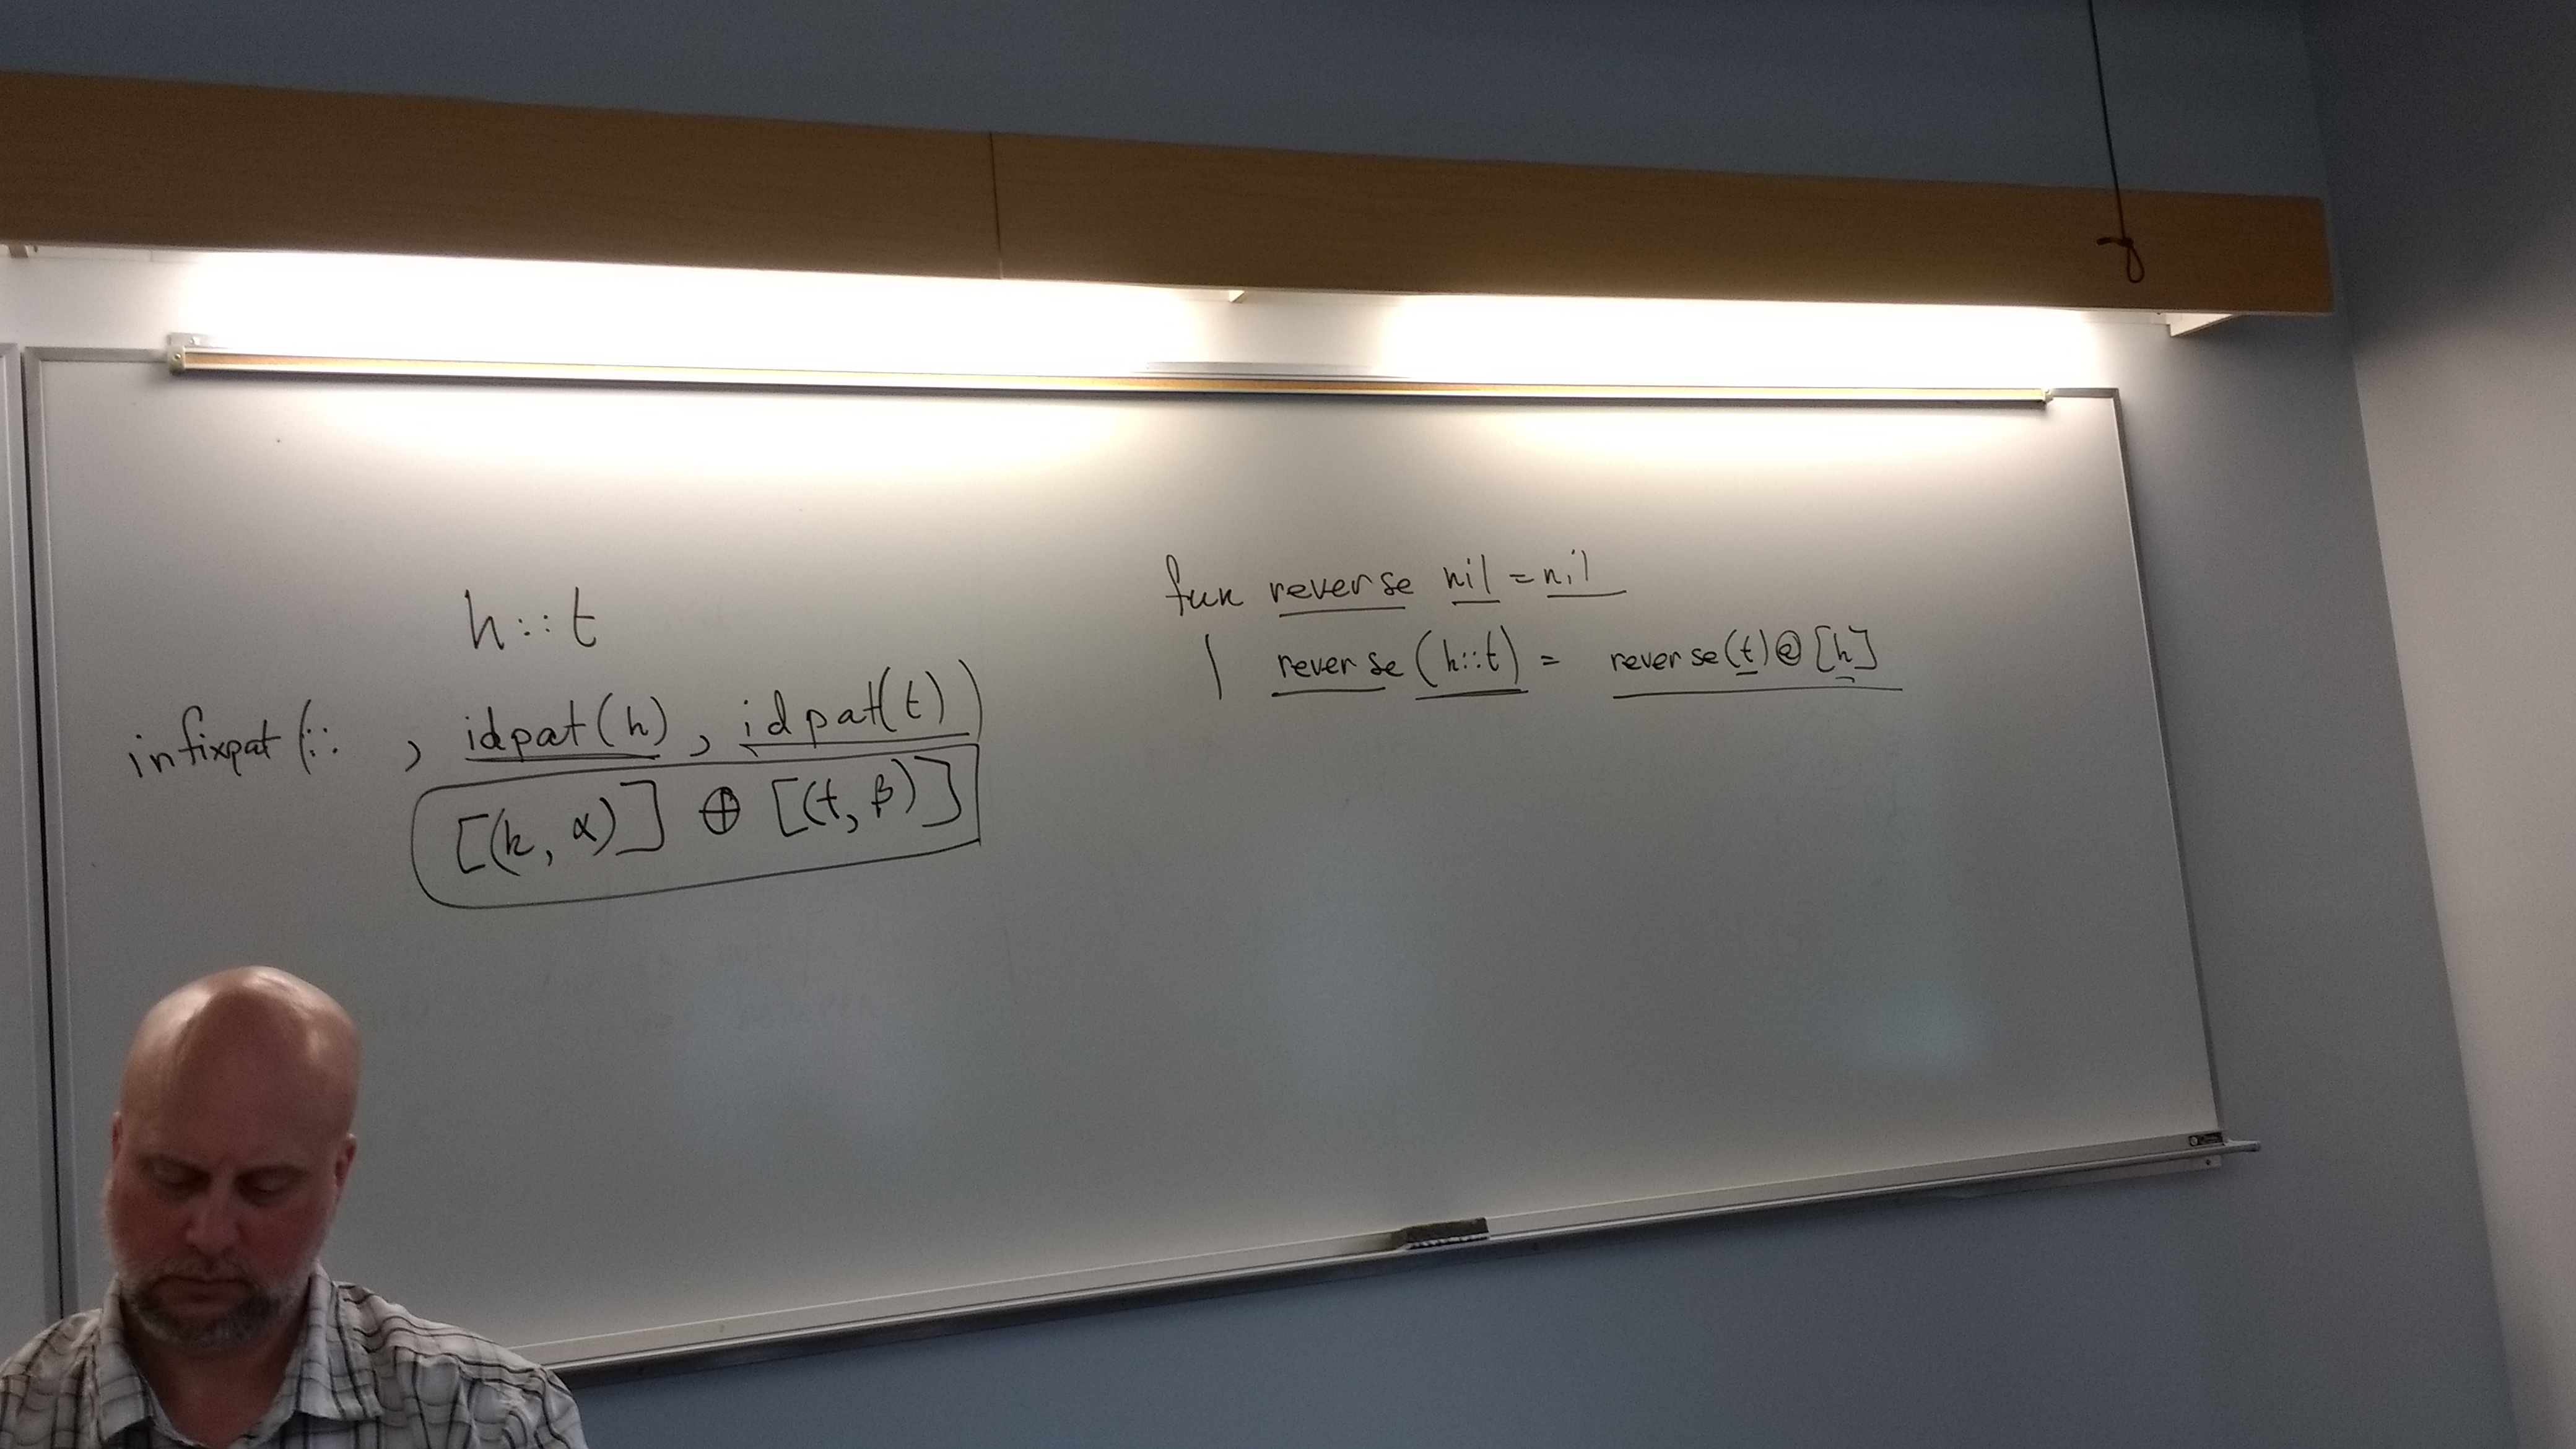 h::t
infixpat(::   , idpat(h), idpat(t))
[(h, α)] ⊕ [(t, β)]
fun reverse nil = nil
| reverse (h::t) = reverse(t)@[h]